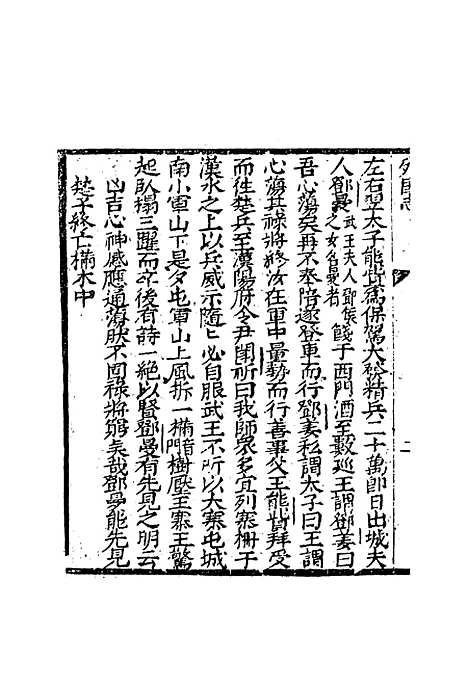 列國志
二
左右翌太子能貲爲保駕大發精兵二十萬即日出城夫
人鄧曼武王夫人鄧侯之女名曼者餞于西門酒至數巡王謂鄧姜曰
吾心蕩矣再不奉陪遂登車而行鄧姜私謂太子曰王謂
心蕩其祿將終汝在軍中量勢而行善事父王能貲拜受
而徃楚兵至漢陽府令尹鬬祈曰我師眾多宜列寨柵于
漢水之上以兵威示隨匕必自服武王不所以大寨屯城
南小軍山下是夕屯軍山上風拆一樠門樹壓王寨王驚
起臥榻三醒而卒後有詩一絶以賢鄧曼有先見之明云
凶吉心神感應通蕩然不回祿將窮矣哉鄧曼能先見
楚子終亡樠木中